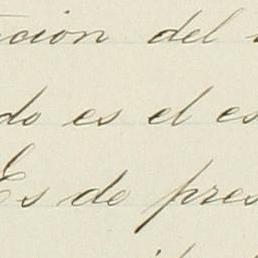 ción del
do es el es
Es de pres